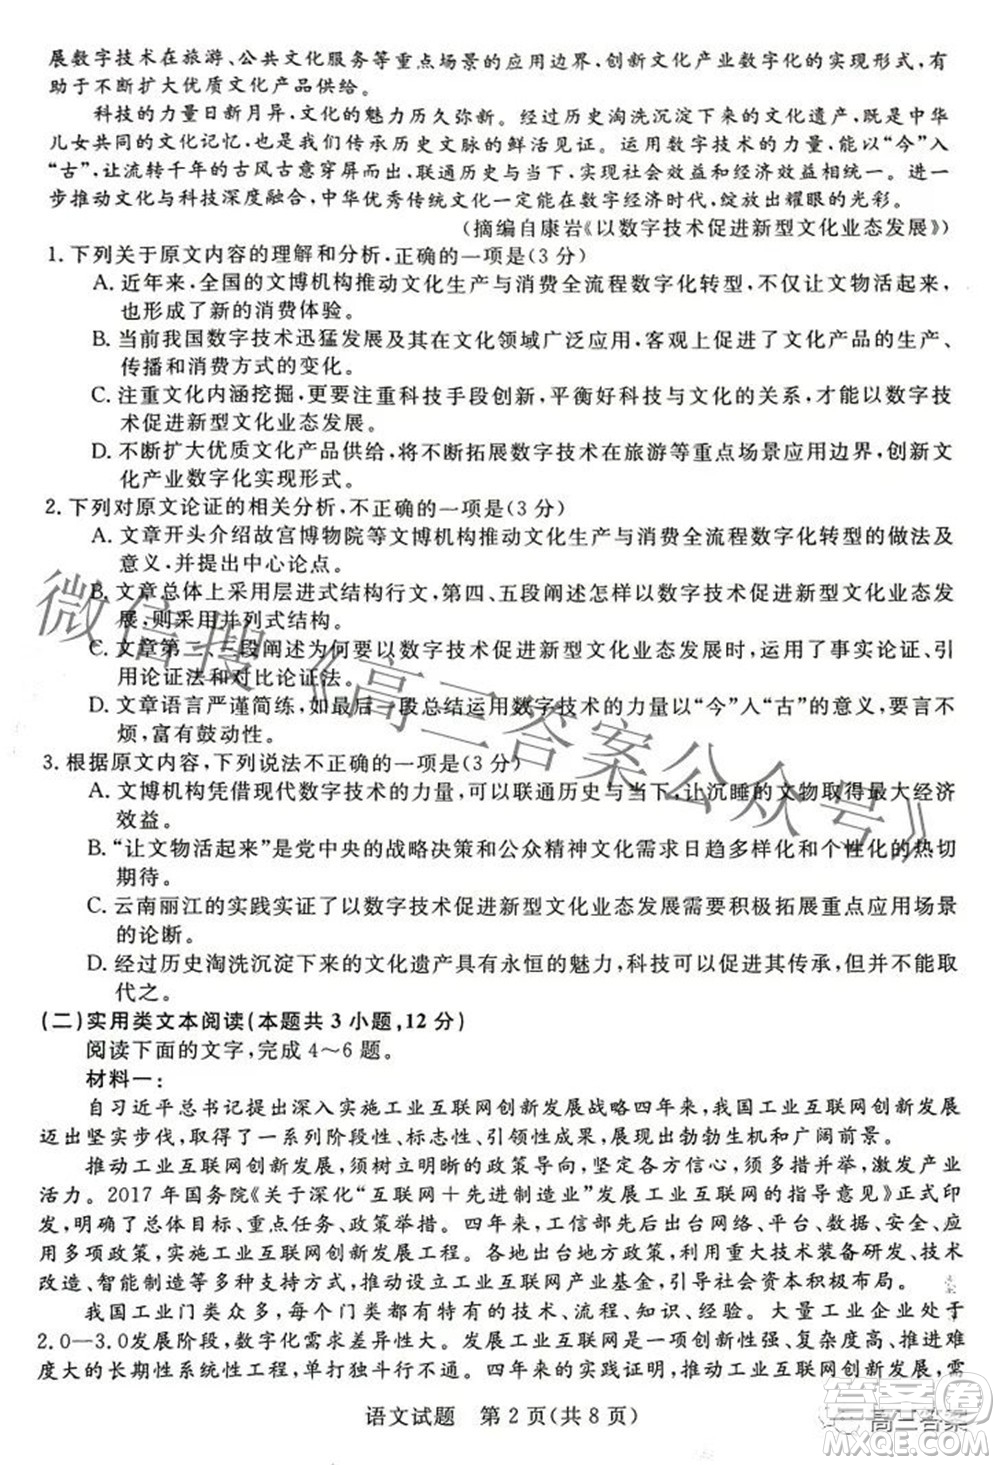 展数字技术在旅游、公共文化服务等重点场景的应用边界,创新文化产业数字化的实现形式,有
助于不断扩大优质文化产品供给。
科技的力量日新月异,文化的魅力历久弥新。经过历史淘洗沉淀下来的文化遗产,是中华
儿女共同的文化记忆,也是我们传承历史文脉的鲜活见证。运用数字技术的力量,能以“今”入
“古”,让流转千年的古风古意穿屏而出,联通历史与当下,实现社会效益和经济效益相统一。进一
步推动文化与科技深度融合,中华优秀传统文化一定能在数字经济时代,绽放出耀眼的光彩。
(摘编自康岩《以数字技术促进新型文化业态发展》)
1. 下列关于原文内容的理解和分析,正确的一项是(3 分)
A. 近年来,全国的文博机构推动文化生产与消费全流程数字化转型,不仅让文物活起来,
也形成了新的消费体验。
B. 当前我国数字技术迅猛发展及其在文化领域广泛应用,客观上促进了文化产品的生产、
传播和消费方式的变化。
C. 注重文化内涵挖掘,更要注重科技手段创新,平衡好科技与文化的关系,才能以数字技
术促进新型文化业态发展。
D. 不断扩大优质文化产品供给,将不断拓展数字技术在旅游等重点场景应用边界,创新文
化产业数字化实现形式。
2. 下列对原文论证的相关分析,不正确的一项是(3 分)
A. 文章开头介绍故宫博物院等文博机构推动文化生产与消费全流程数字化转型的做法及
意义,并提出中心论点。
B. 文章总体上采用层进式结构行文,第四、五段阐述怎样以数字技术促进新型文化业态发
展,则采用并列式结构。
C. 文章第二、三段阐述为何要以数字技术促进新型文化业态发展时,运用了事实论证、引
用论证法和对比论证法。
D. 文章语言严谨简练,如最后一段总结运用数字技术的力量以“今”入“古”的意义,要言不
烦,富有鼓动性。
3. 根据原文内容,下列说法不正确的一项是(3 分)
A. 文博机构凭借现代数字技术的力量,可以联通历史与当下,让沉睡的文物取得最大经济
效益。
B. “让文物活起来”是党中央的战略决策和公众精神文化需求日趋多样化和个性化的热切
期待。
C. 云南丽江的实践实证了以数字技术促进新型文化业态发展需要积极拓展重点应用场景
的论断。
D. 经过历史淘洗沉淀下来的文化遗产具有永恒的魅力,科技可以促进其传承,但不能取
代之。
(二)实用类文本阅读(本题共 3 小题,12 分)
阅读下面的文字,完成 4~6 题。
材料一:
自习近平总书记提出深入实施工业互联网创新发展战略四年来,我国工业互联网创新发展
迈出坚实步伐,取得了一系列阶段性、标志性、引领性成果,展现出勃勃生机和广阔前景。
推动工业互联网创新发展,须树立明晰的政策导向,坚定各方信心,多措并举,激发产业
活力。2017 年国务院《关于深化“互联网+先进制造业”发展工业互联网的指导意见》正式印
发,明确了总体目标、重点任务、政策举措。四年来,工信部先后出台网络、平台、数据、安全、应
用多项政策,实施工业互联网创新发展工程。各地出台地方政策,利用重大技术装备研发、技术
改造、智能制造等多种支持方式,推动设立工业互联网产业基金,引导社会资本积极布局。
我国工业门类众多,每个门类都有特有的技术、流程、知识、经验。大量工业企业处于
2.0—3.0发展阶段,数字化需求差异性大。发展工业互联网是一项创新性强、复杂度高、推进难
度大的长期性系统性工程,单打独斗行不通。四年来的实践证明,推动工业互联网创新发展,需
语文试题 第 2 页(共 8 页)
微信搜《高三答案公众号》
答案圈
MXQE.COM
高三答案